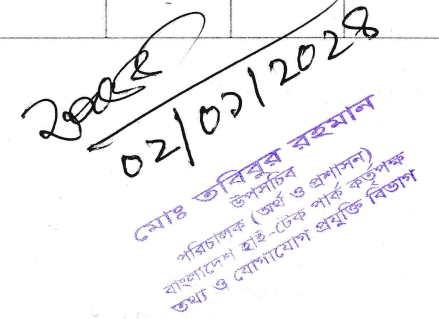 ০২/০১/২০২৪
মোঃ তবিবুর রহমান
উপসচিব
পরিচালক (অর্থ ও প্রশাসন)
বাংলাদেশ হাই-টেক পার্ক কর্তৃপক্ষ
তথ্য ও যোগাযোগ প্রযুক্তি বিভাগ